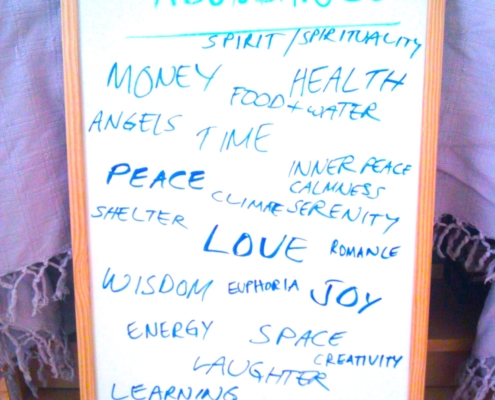 ABUNDANCE
SPIRIT/SPIRITUALITY
MONEY
HEALTH
FOOD + WATER
ANGELS
TIME
INNER PEACE
PEACE
CALMNESS
CLIMATE
SERENITY
SHELTER
LOVE
ROMANCE
WISDOM
EUPHORIA
JOY
ENERGY
SPACE
CREATIVITY
LAUGHTER
LEARNING